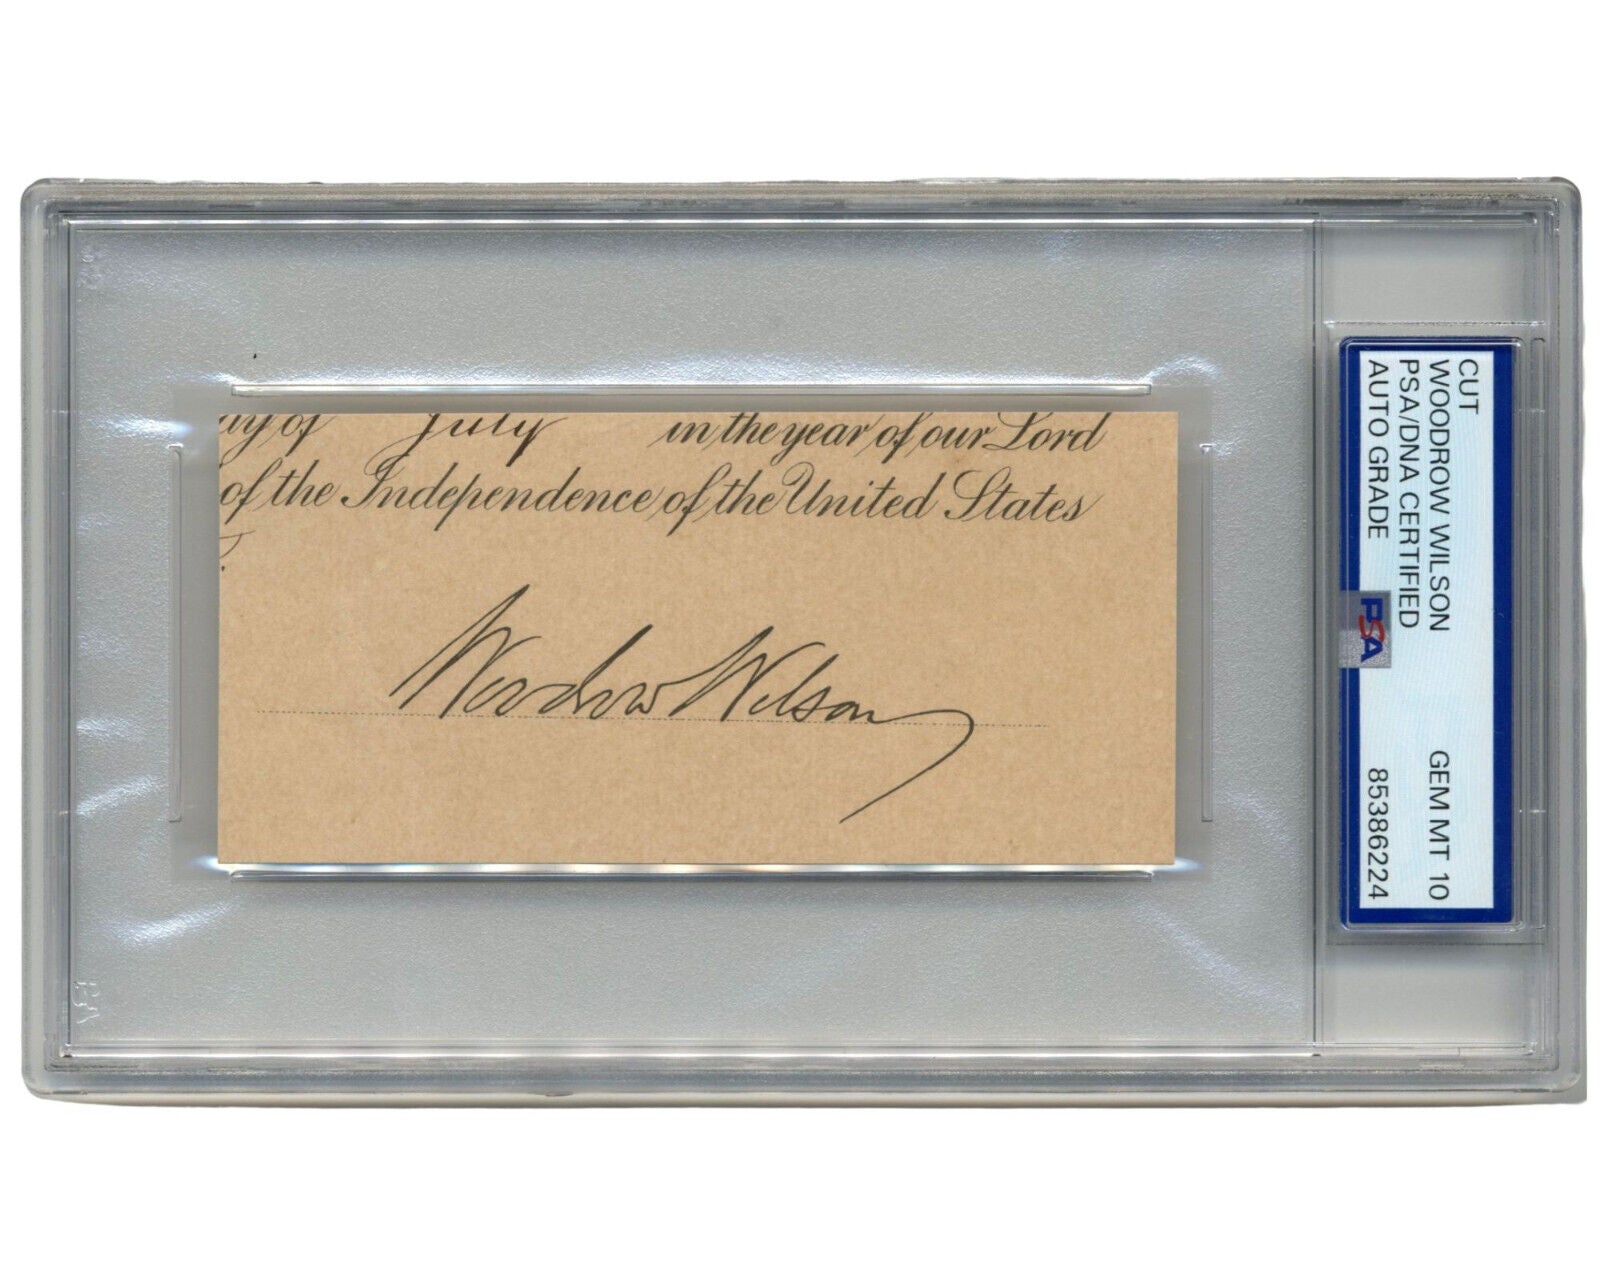 July in the year of our Lord
of the Independence of the United States
Woodrow Wilson
CUT
WOODROW WILSON GEM MT 10
PSA/DNA CERTIFIED
AUTO GRADE 85386224
PSA